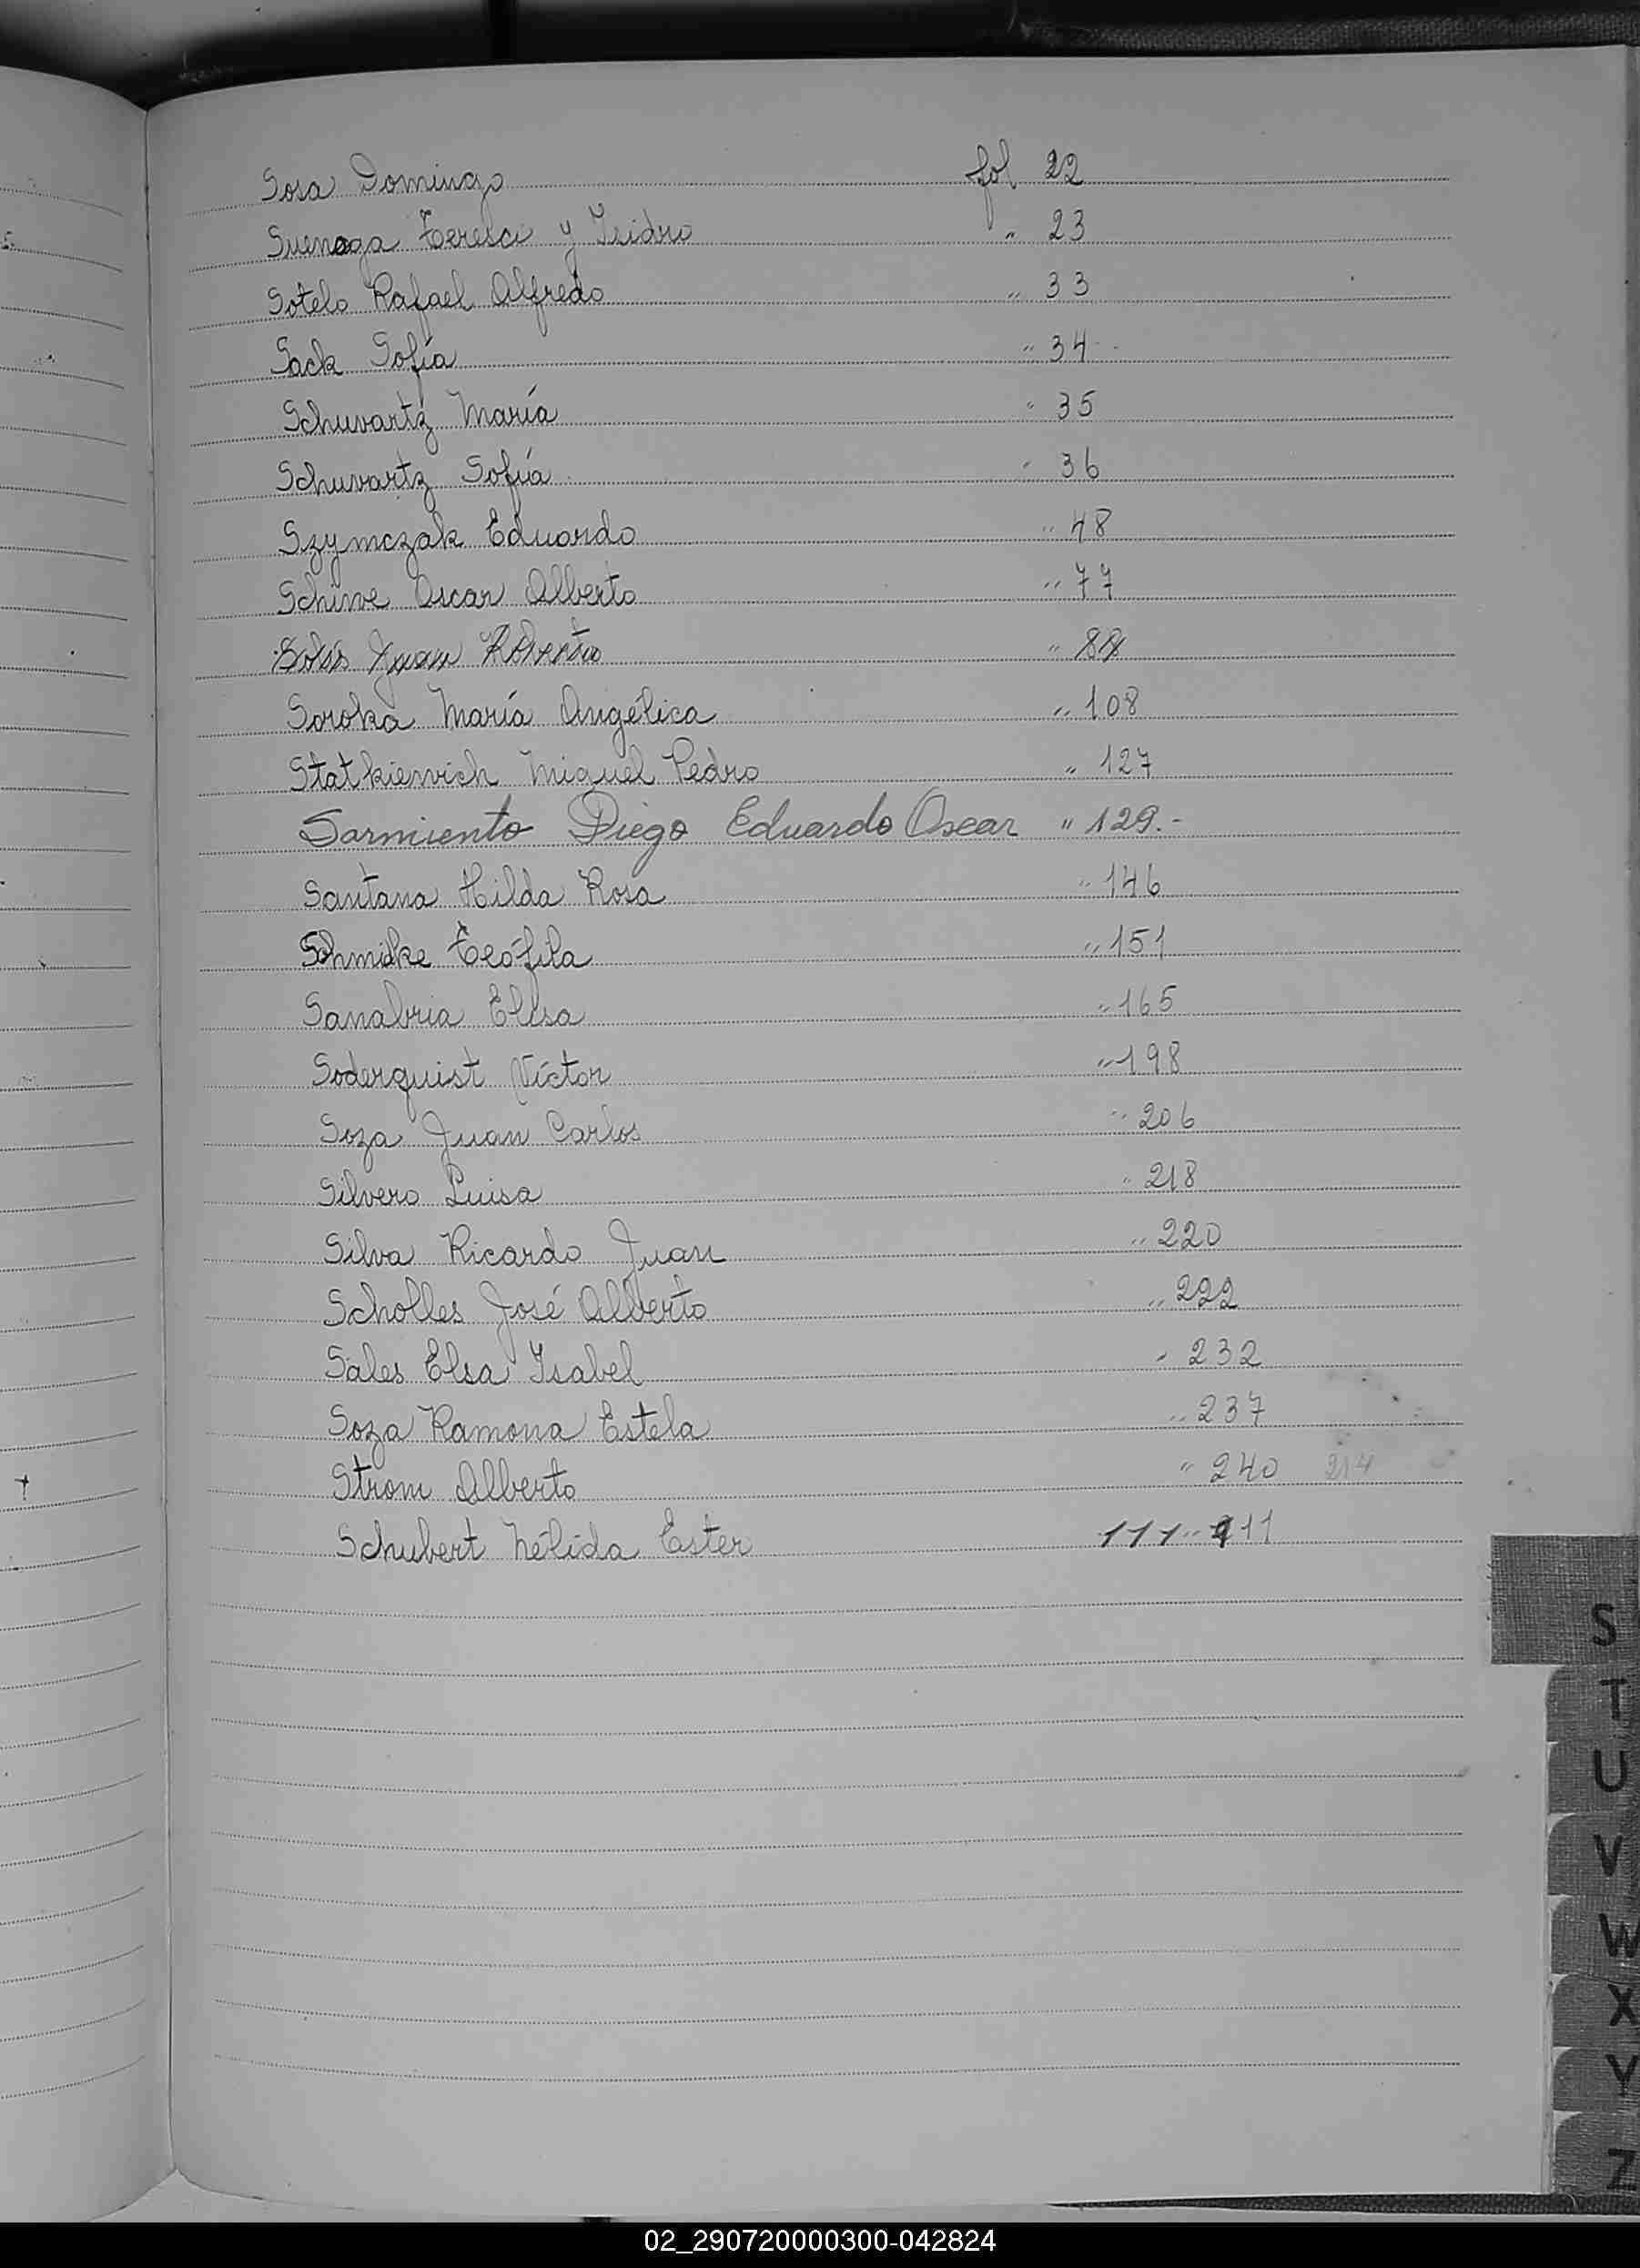 Sosa Domingo fol 22
Suenaga Teresa y Isidro " 23
Sotelo Rafael Alfredo " 33
Sack Sofía " 34
Schuvartz María " 35
Schuvartz Sofía " 36
Szymczak Eduardo " 48
Schinve Oscar Alberto " 77
Solis Juan Roberto " 88
Soroka María Angélica " 108
Statkiewich Miguel Pedro " 127
Sarmiento Diego Eduardo Oscar " 129.-
Santana Hilda Rosa " 146
Schmidke Teófila " 151
Sanabria Elisa " 165
Soderquist Víctor " 198
Soza Juan Carlos " 206
Silvero Luisa " 218
Silva Ricardo Juan " 220
Scholles José Alberto " 222
Sales Elsa Isabel " 232
Soza Ramona Estela " 237
Strom Alberto " 240 214
Schubert Nélida Ester 111 " 111
S
T
U
V
W
X
Y
Z
02_290720000300-042824